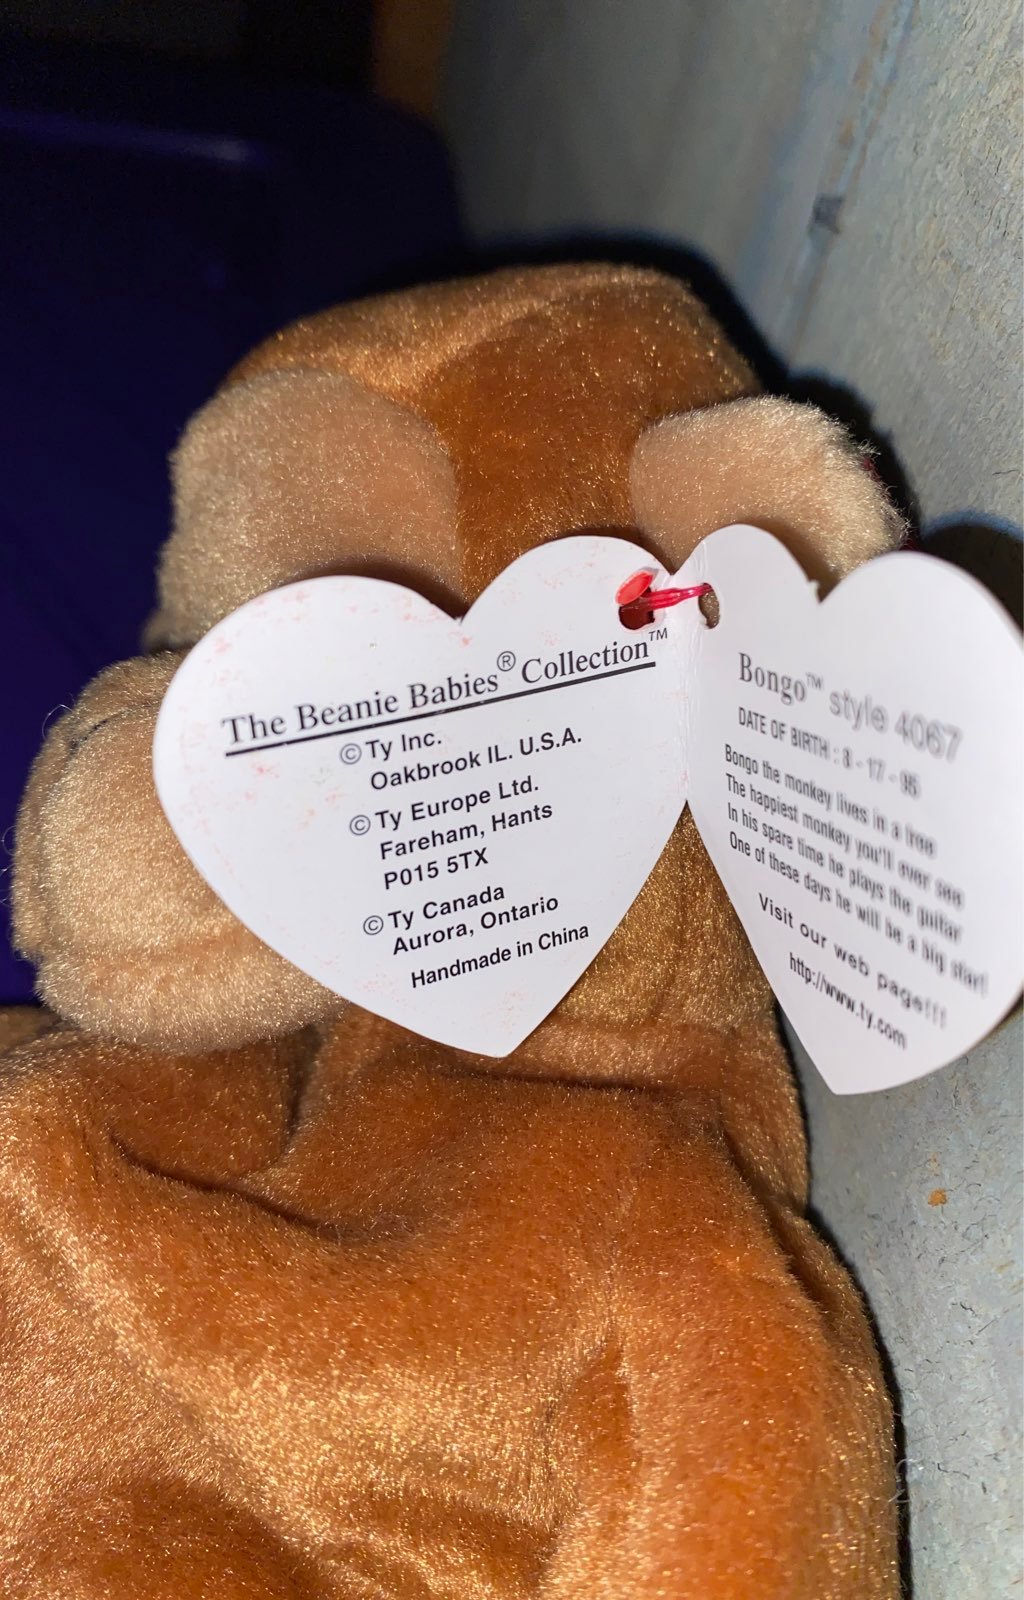 The Beanie Babies® Collection™
©Ty Inc.
Oakbrook IL. U.S.A.
©Ty Europe Ltd.
Fareham, Hants
P015 5TX
©Ty Canada
Aurora, Ontario
Handmade in China
Bongo™ style 4067
DATE OF BIRTH : 8 - 17 - 95
Bongo the monkey lives in a tree
The happiest monkey you'll ever see
In his spare time he plays the guitar
One of these days he will be a big star!
Visit our web page!!!
http://www.ty.com